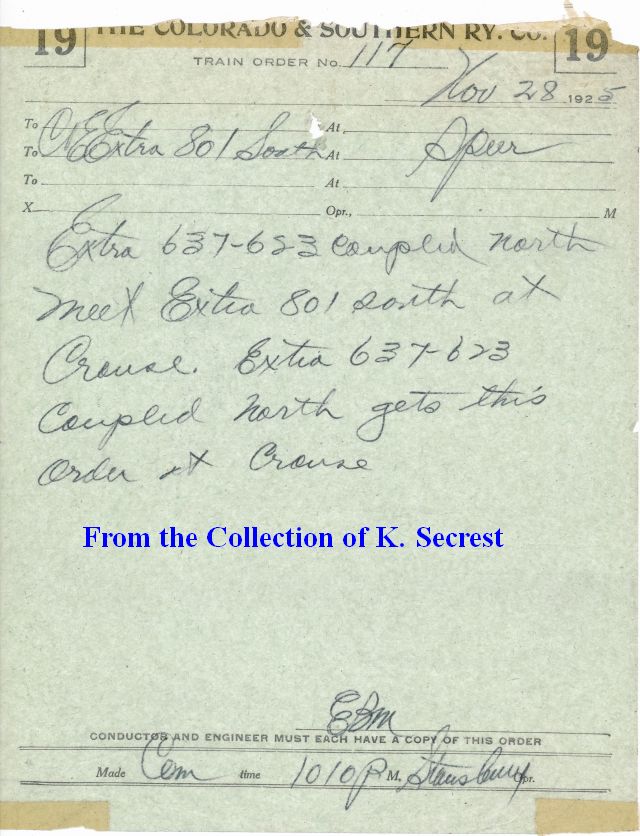 19 THE COLORADO & SOUTHERN RY. CO. 19
TRAIN ORDER No. 117
Nov 28 1925
To C&E Extra 801 South At Speer
To At
To At
X Opr., M
Extra 637-623 Coupled north
meet Extra 801 south at
Crouse. Extra 637-623
Coupled North gets this
order at Crouse
From the Collection of K. Secrest
EBM
CONDUCTOR AND ENGINEER MUST EACH HAVE A COPY OF THIS ORDER
Made Com time 1010P M. Stansbury Opr.